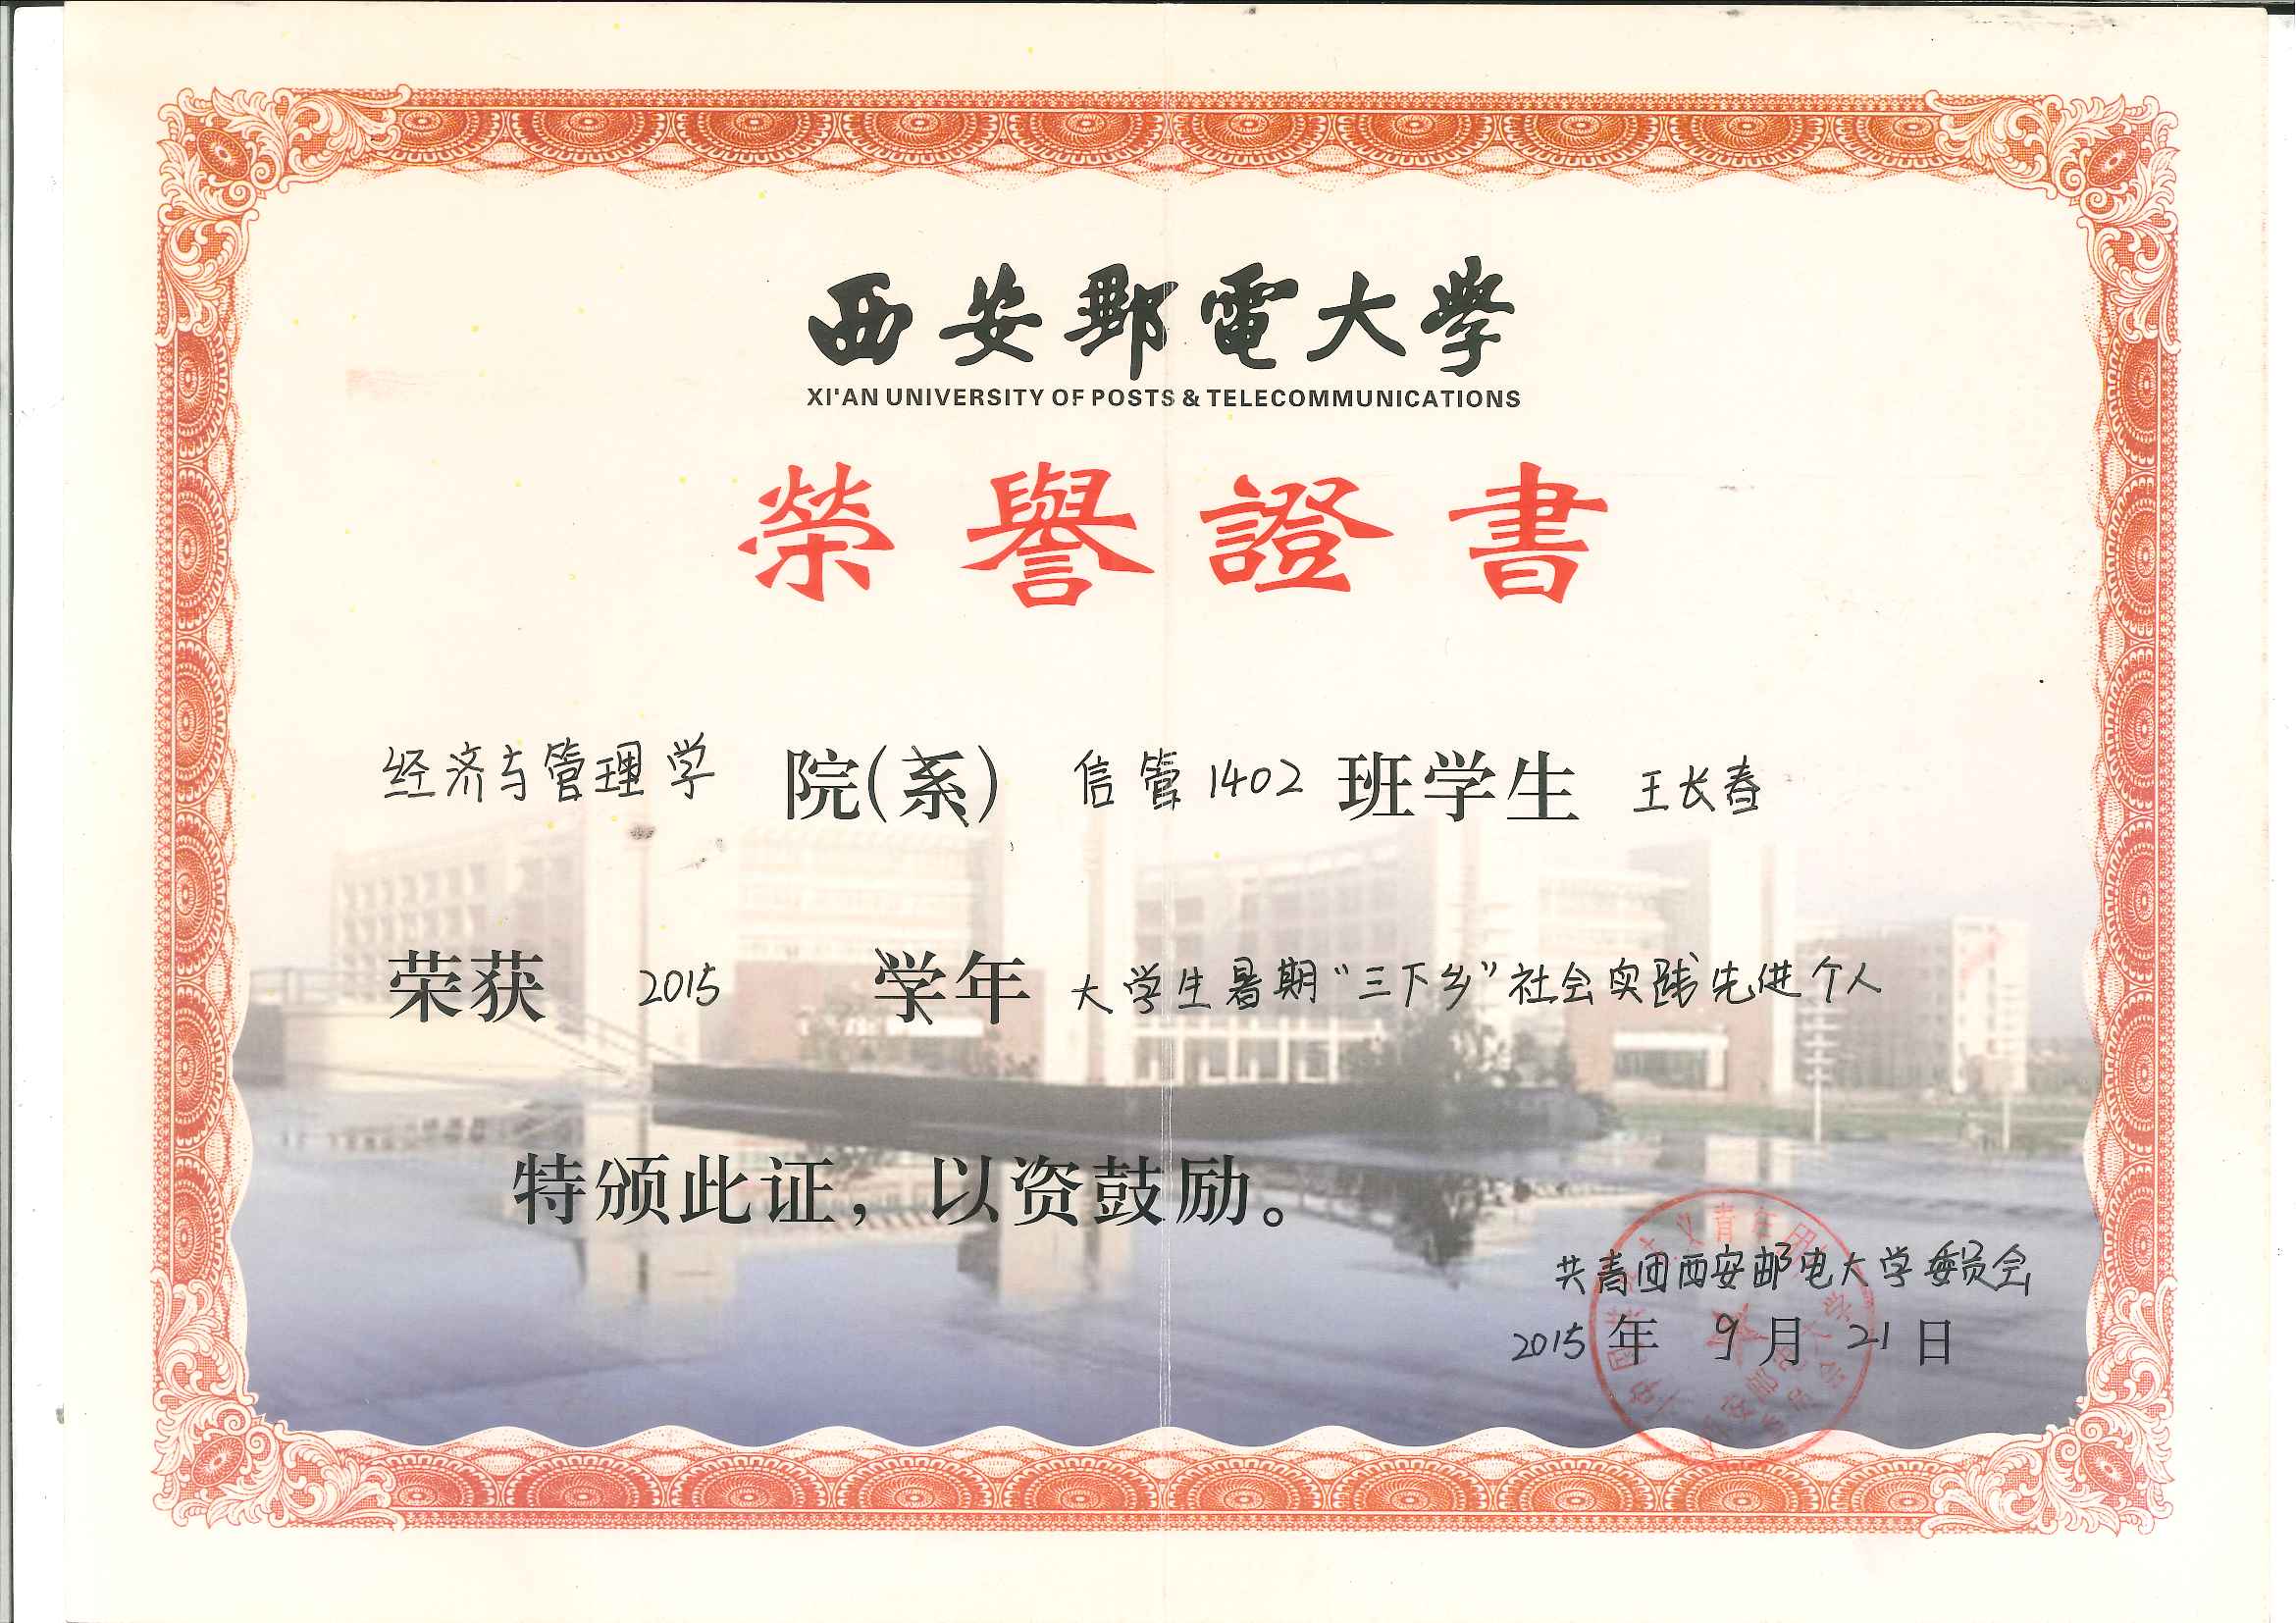 西安郵電大學
XI'AN UNIVERSITY OF POSTS & TELECOMMUNICATIONS
榮譽證書
经济与管理学 院(系) 信管1402 班学生 王长春
荣获 2015 学年 大学生暑期“三下乡”社会实践先进个人
特颁此证，以资鼓励。
共青团西安邮电大学委员会
2015 年 9 月 21 日